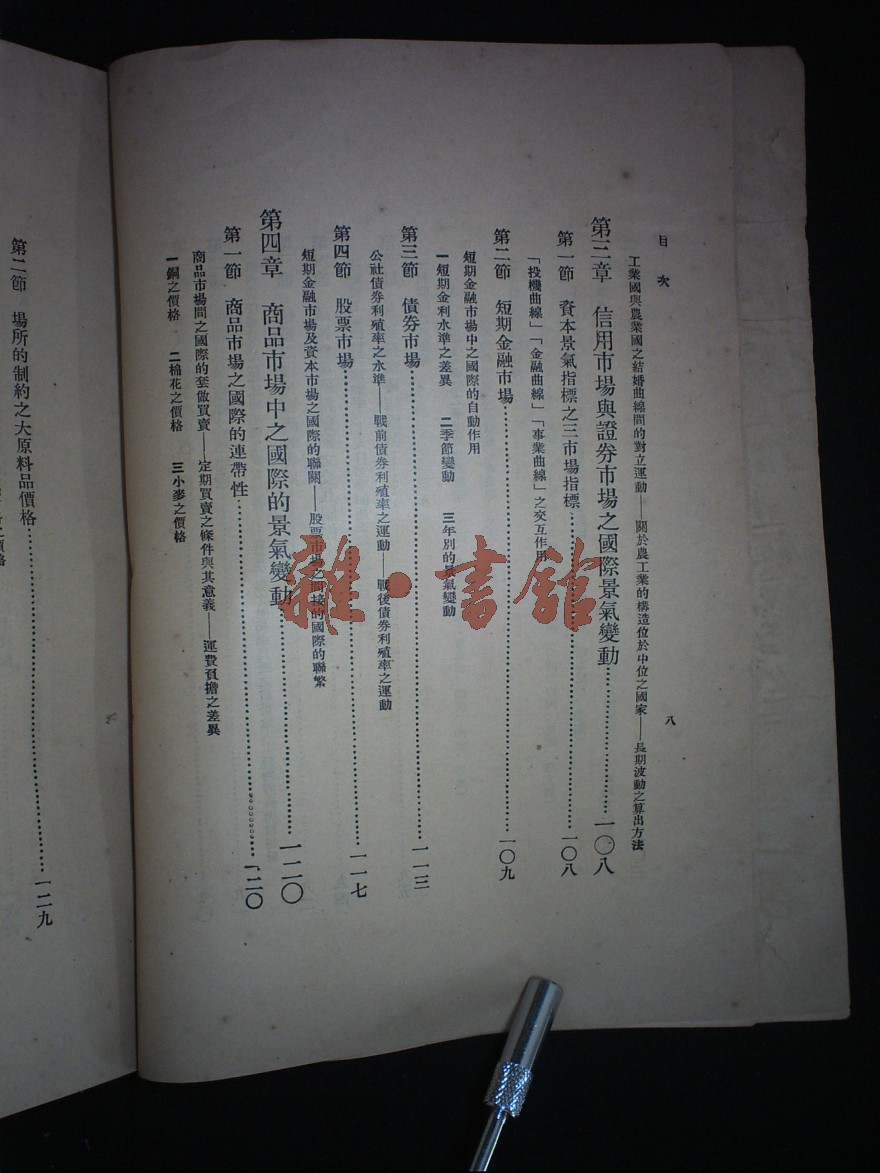 目次
八
工業國與農業國之結婚曲線間的對立運動——關於農工業的構造位於中位之國家——長期波動之算出方法
第三章 信用市場與證券市場之國際景氣變動……一〇八
第一節 資本景氣指標之三市場指標……一〇八
「投機曲線」「金融曲線」「事業曲線」之交互作用
第二節 短期金融市場……一〇九
短期金融市場中之國際的自動作用
一短期金利水準之差異 二季節變動 三年別的景氣變動
第三節 債券市場……一一三
公社債券利殖率之水準——戰前債券利殖率之運動——戰後債券利殖率之運動
第四節 股票市場……一一七
短期金融市場及資本市場之國際的聯關——股票市場之間接的國際的聯繫
第四章 商品市場中之國際的景氣變動……一二〇
第一節 商品市場之國際的連帶性……一二〇
商品市場間之國際的套做買賣——定期買賣之條件與其意義——運費負擔之差異
一銅之價格 二棉花之價格 三小麥之價格
第二節 場所的制約之大原料品價格……一二九
價格
雜·書館